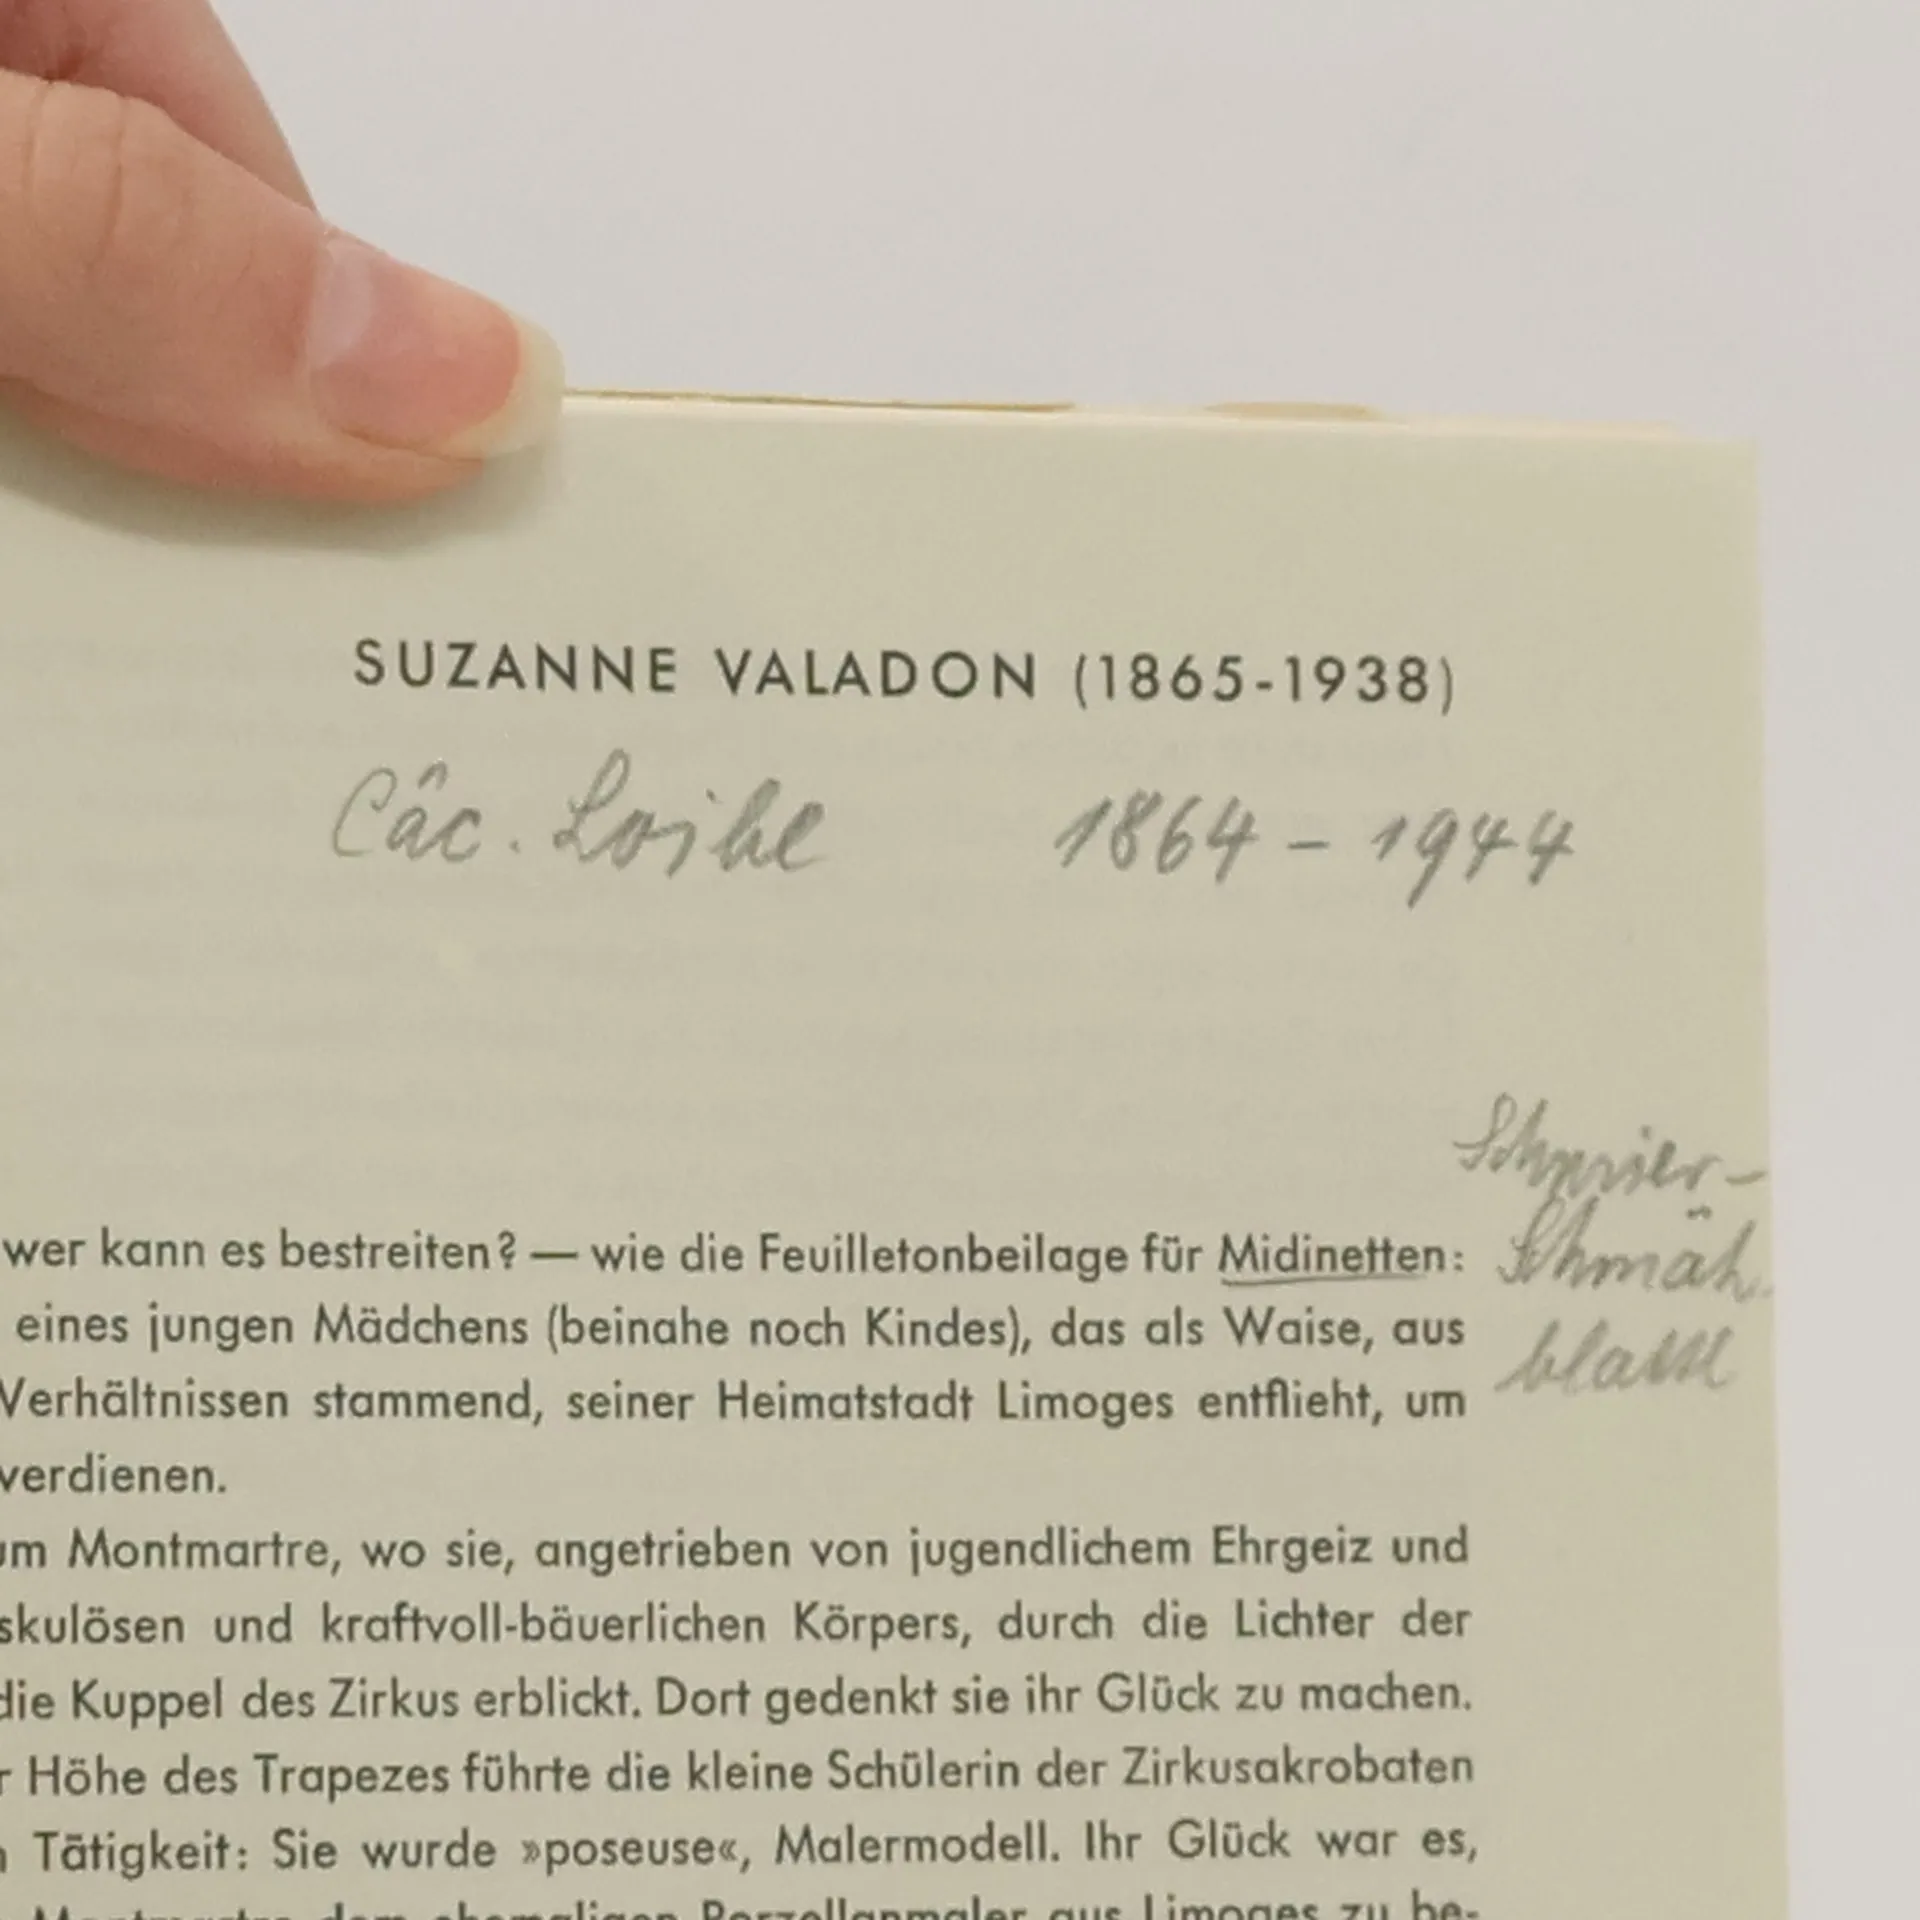 SUZANNE VALADON (1865-1938)
Câc. Loibl 1864 - 1944
Schmier-
Schmäh-
blattl
wer kann es bestreiten? — wie die Feuilletonbeilage für Midinetten:
eines jungen Mädchens (beinahe noch Kindes), das als Waise, aus
Verhältnissen stammend, seiner Heimatstadt Limoges entflieht, um
verdienen.
um Montmartre, wo sie, angetrieben von jugendlichem Ehrgeiz und
skulösen und kraftvoll-bäuerlichen Körpers, durch die Lichter der
die Kuppel des Zirkus erblickt. Dort gedenkt sie ihr Glück zu machen.
r Höhe des Trapezes führte die kleine Schülerin der Zirkusakrobaten
n Tätigkeit: Sie wurde »poseuse«, Malermodell. Ihr Glück war es,
Montmartre dem ehemaligen Porzellanmaler aus Limoges zu be-